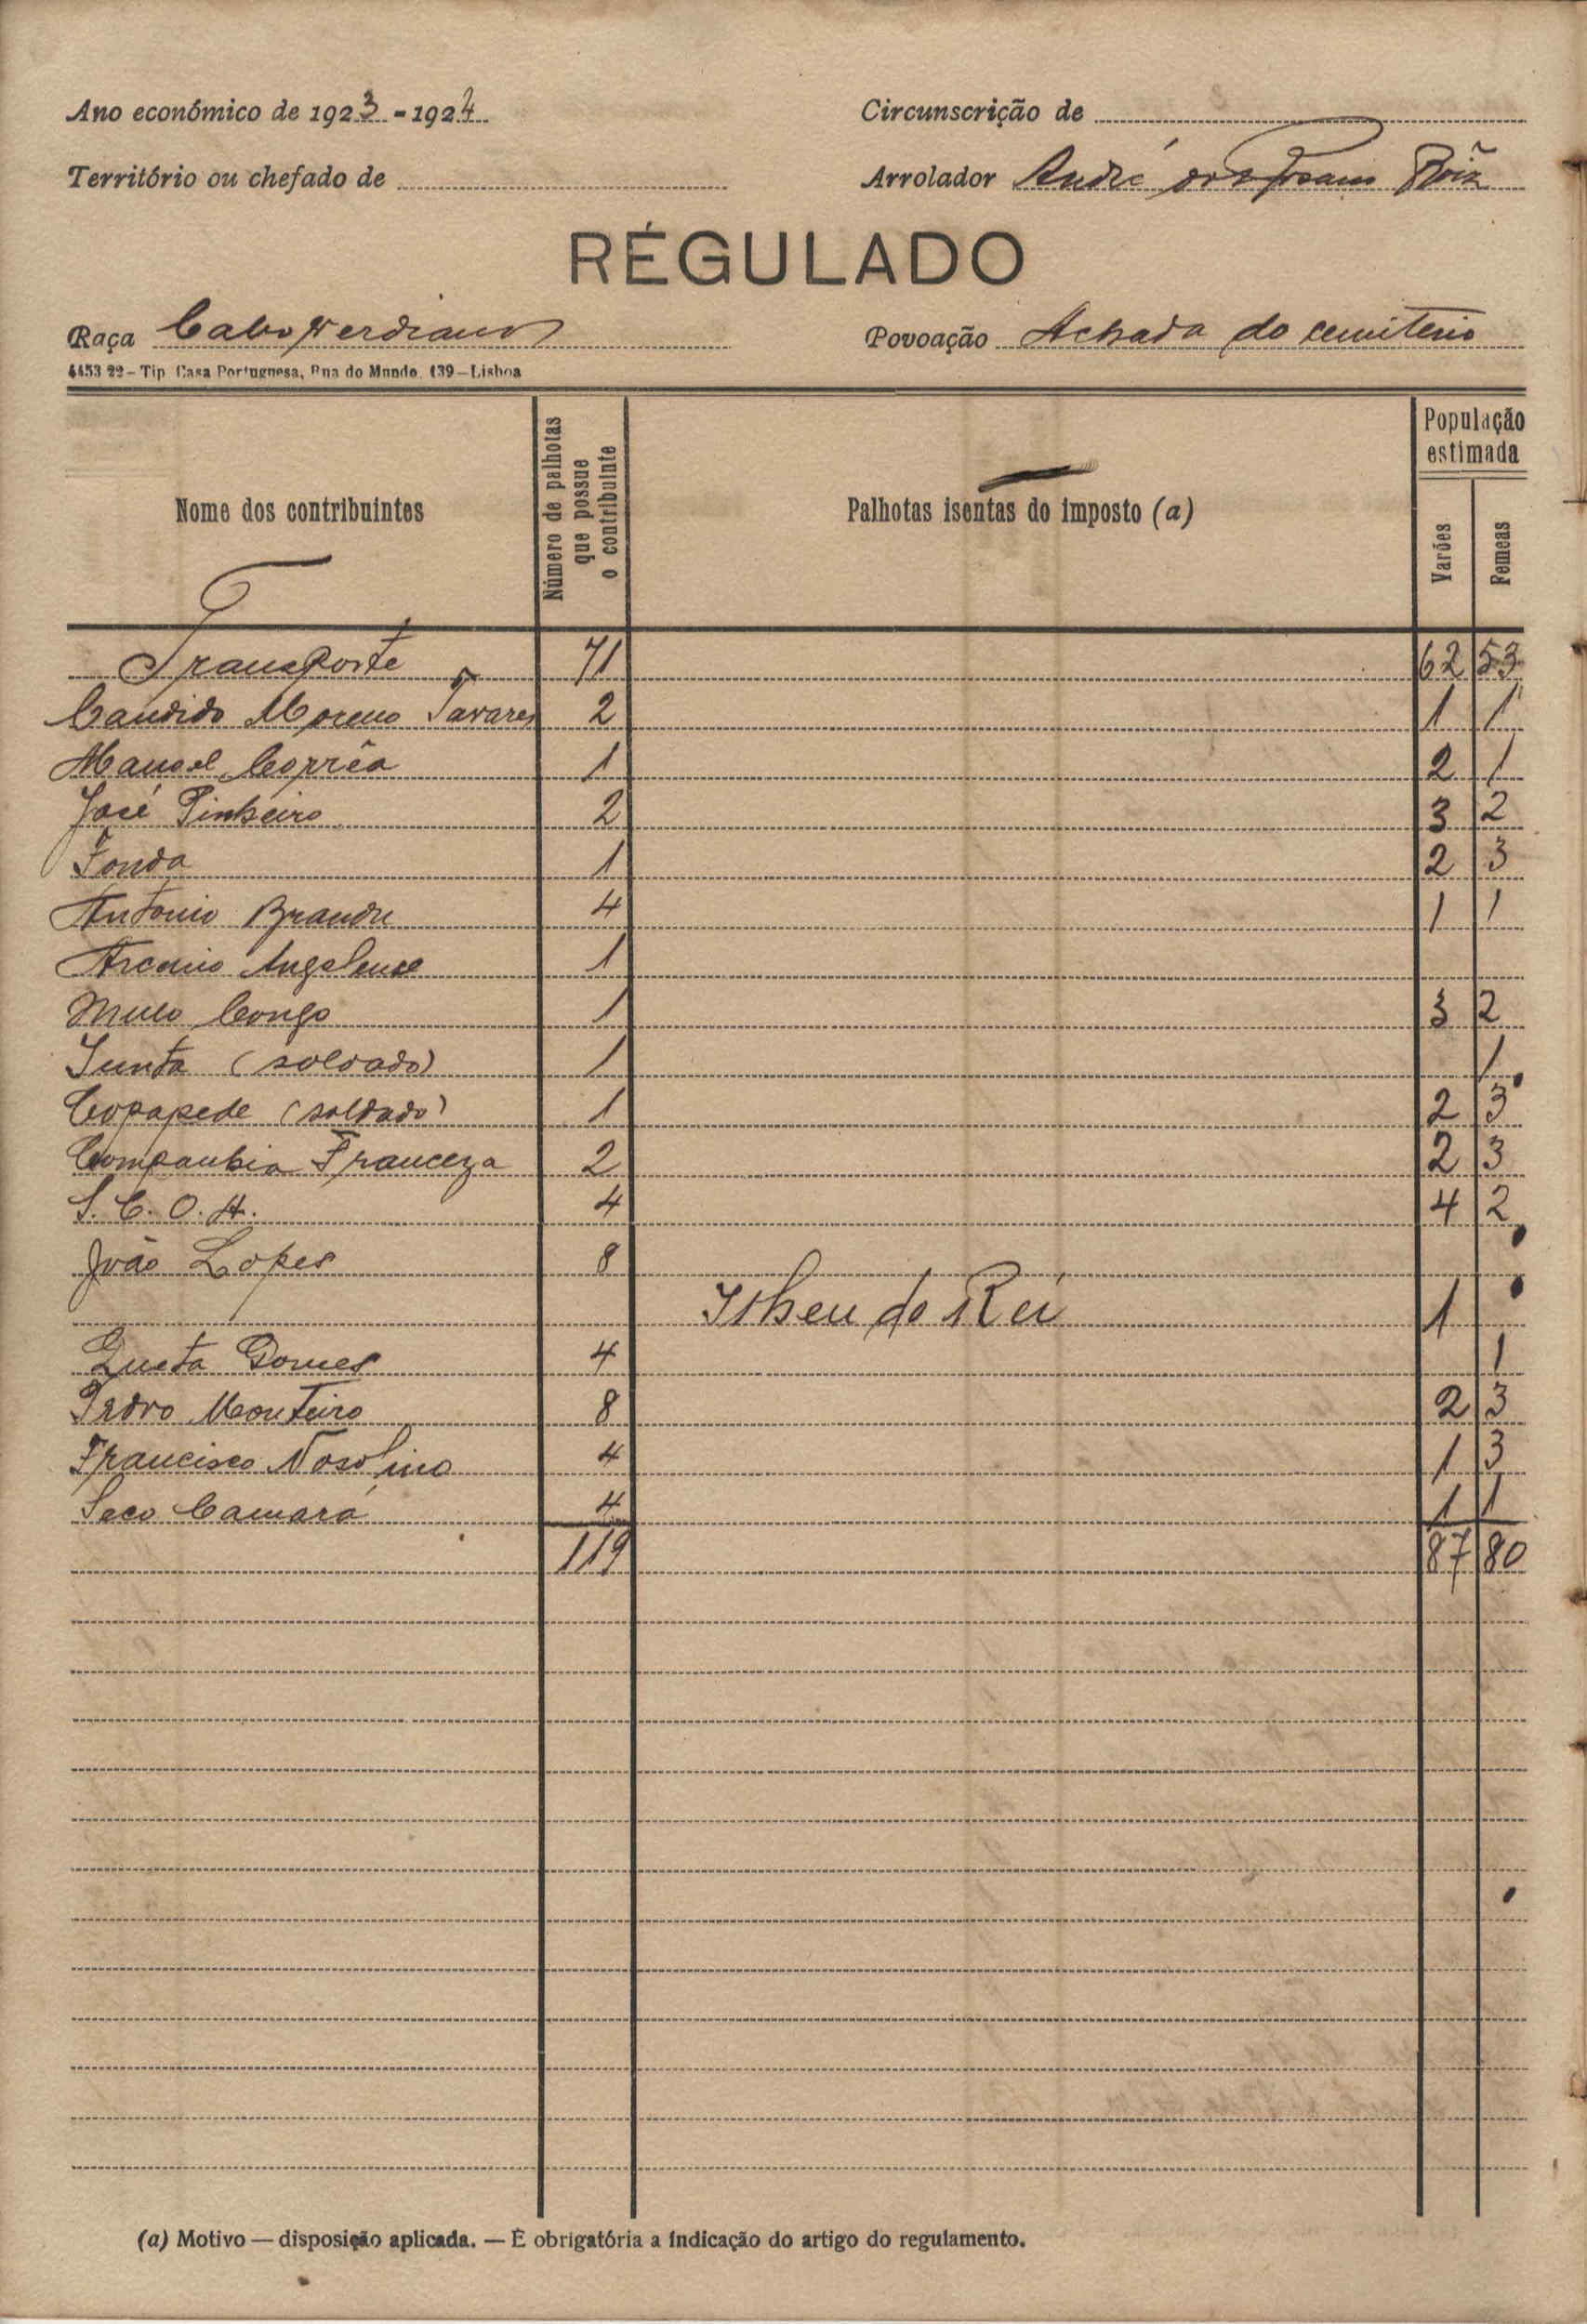 Ano económico de 1923-1924
Circunscrição de
Território ou chefado de
Arrolador André dos
RÉGULADO
Raça Caboverdiano
Povoação Achada do cemiterio
4453 22 – Tip Casa Portuguesa, Rua do Mundo, 139 – Lisboa
Nome dos contribuintes
Número de palhotas que possue o contribuinte
Palhotas isentas do imposto (a)
População estimada
Varões
Femeas
Transporte 71 62 53
Candido Moreno Tavares 2 1 1
Manoel Corrêa 1 2 1
José Pinheiro 2 3 2
Fonda 1 2 3
Antonio Brandu 4 1 1
Arcenio Angolense 1
Congo 1 3 2
Junta (soldado) 1 1
Copapede (soldado) 1 2 3
Companhia Franceza 2 2 3
S. C. O. A. 4 4 2
João Lopes 8
Ilheu do Rei 1
Queta Gomes 4 1
Pedro Monteiro 8 2 3
Francisco Nosolino 4 1 3
Seco Camará 4 1 1
119 87 80
(a) Motivo — disposição aplicada. — É obrigatória a indicação do artigo do regulamento.